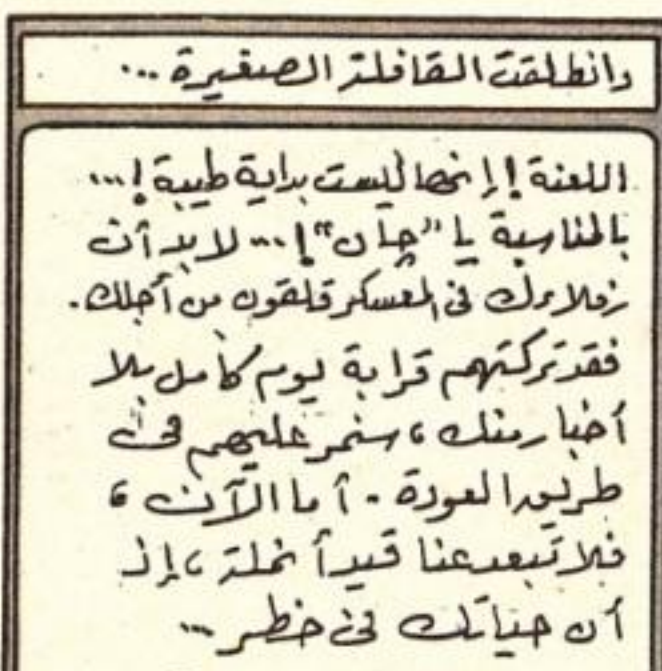 وانطلقت القافلة الصغيرة ...
اللعنة ! إنها ليست بداية طيبة ! ...
بالمناسبة يا "چان" ! ... لابد أن
زملاءك فى المعسكر قلقون من أجلك .
فقد تركتهم قرابة يوم كامل بلا
أخبار منك ، سنمر عليهم فى
طريق العودة . أما الآن ،
فلا تبعد عنا قيد أنملة ، إذ
أن حياتك فى خطر ...